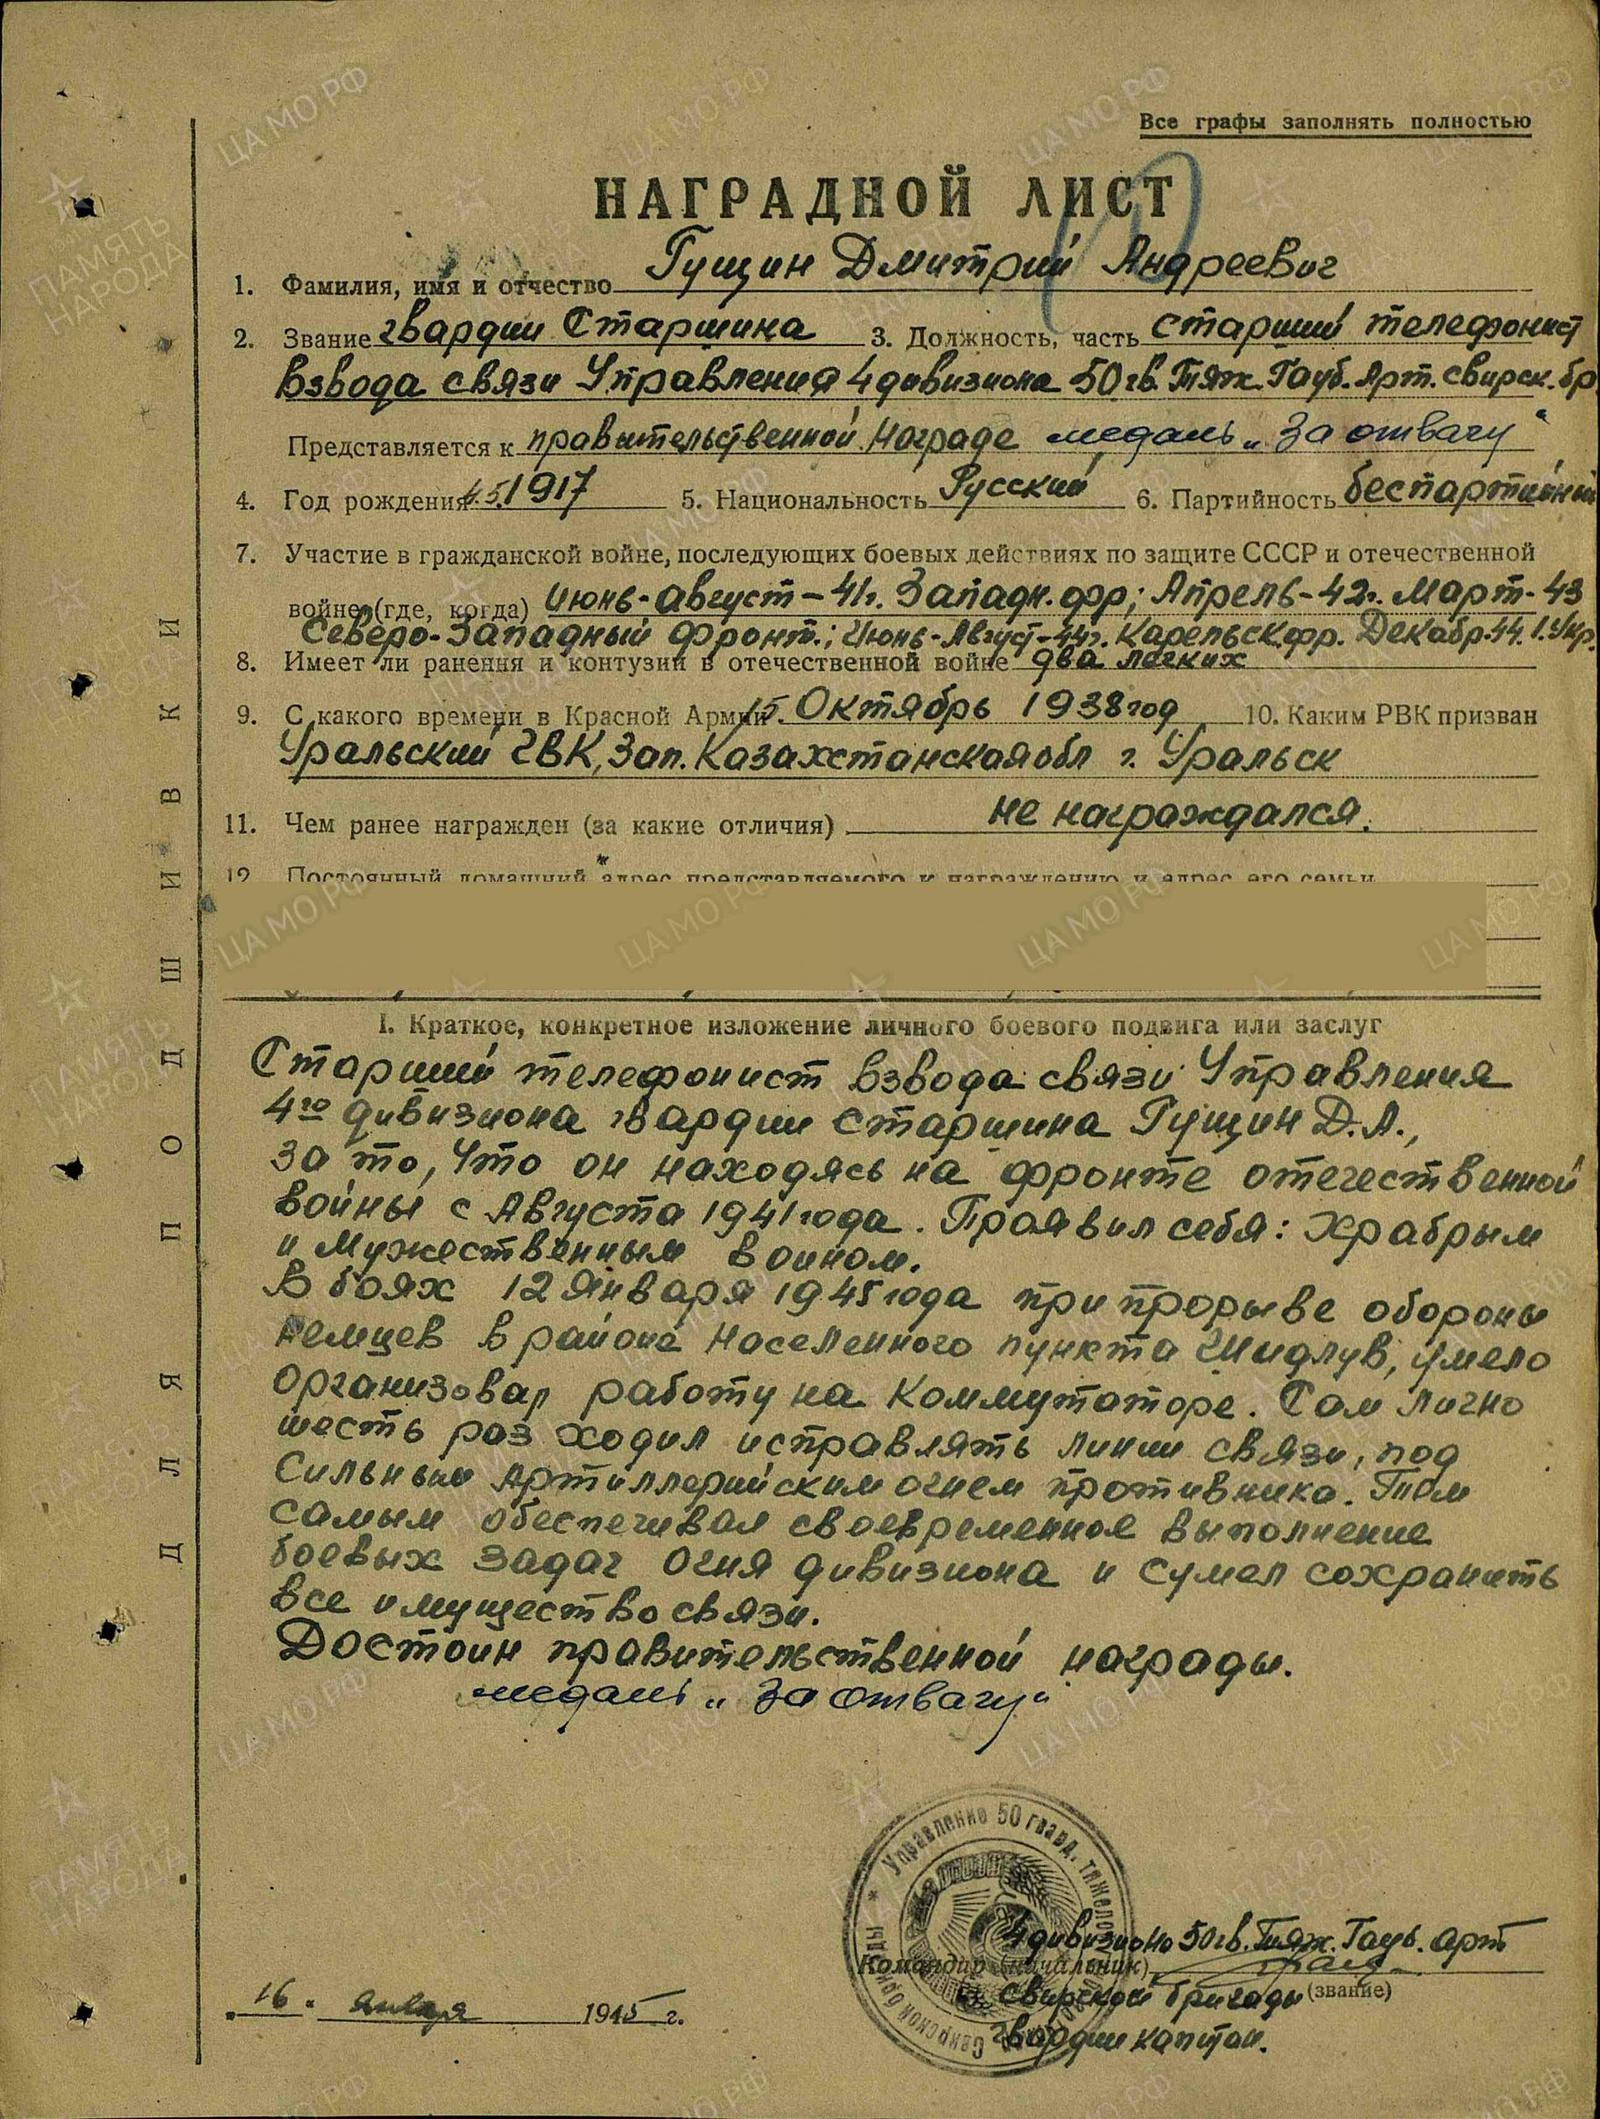 Все графы заполнять полностью
НАГРАДНОЙ ЛИСТ
1. Фамилия, имя и отчество Гущин Дмитрий Андреевич
2. Звание гвардии Старшина 3. Должность, часть старший телефонист
взвода связи Управления 4 дивизиона 50 гв. Тяж. Гауб. Арт. Свирск. бр
Представляется к правительственной награде медаль „За отвагу"
4. Год рождения 1917 5. Национальность Русский 6. Партийность беспартийный
7. Участие в гражданской войне, последующих боевых действиях по защите СССР и отечественной
войне (где, когда) Июнь-август-41г. Западн. фр; Апрель-42г. Март-43
Северо-Западный фронт.; Июнь-Август-44г. Карельск. фр. Декабр. 44. 1. Укр.
8. Имеет ли ранения и контузии в отечественной войне два легких
9. С какого времени в Красной Армии 15. Октябрь 1938 год 10. Каким РВК призван
Уральский ГВК, Зап. Казахстанская обл г. Уральск
11. Чем ранее награжден (за какие отличия) не награждался.
12. Постоянный домашний адрес представляемого к награждению и адрес его семьи
I. Краткое, конкретное изложение личного боевого подвига или заслуг
Старший телефонист взвода связи Управления
4го дивизиона гвардии старшина Гущин Д.А.,
за то, что он находясь на фронте отечественной
войны с Августа 1941 года. Проявил себя: храбрым
и мужественным воином.
В боях 12 Января 1945 года при прорыве обороны
немцев в районе населенного пункта Шидлув, умело
организовал работу на коммутаторе. Сам лично
шесть раз ходил исправлять линии связи, под
сильным артиллерийским огнем противника. Тем
самым обеспечивал своевременное выполнение
боевых задач огня дивизиона и сумел сохранить
все имущество связи.
Достоин правительственной награды.
медаль „За отвагу"
4 дивизиона 50 гв. Тяж. Гауб. Арт
Командир (начальник)
Свирской бригады (звание)
гвардии капитан.
„16" января 1945 г.
Управление 50 гвард. тяжелой
Свирской бригады
ДЛЯ ПОДШИВКИ
ЦАМО РФ
ПАМЯТЬ НАРОДА